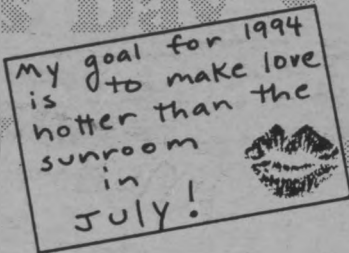 My goal for 1994
is to make love
hotter than the
sunroom
in
July!